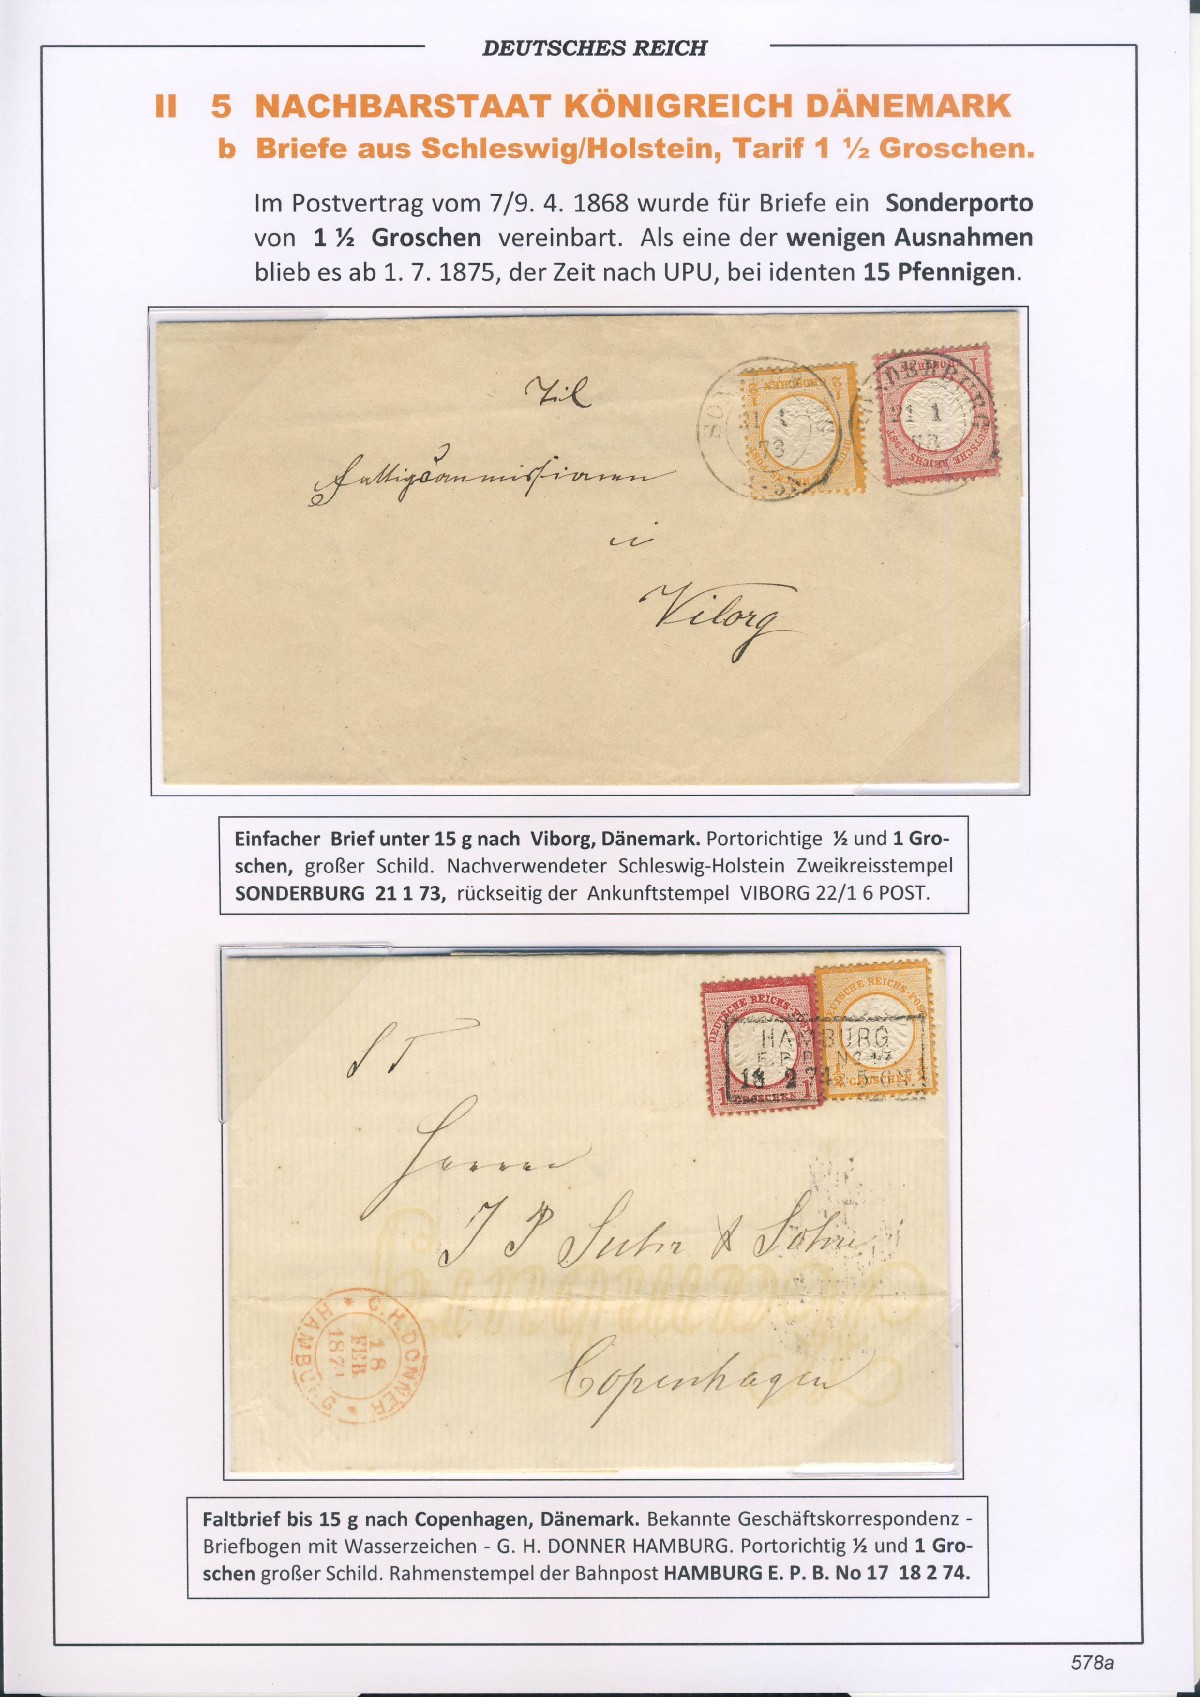 DEUTSCHES REICH
II 5 NACHBARSTAAT KÖNIGREICH DÄNEMARK
b Briefe aus Schleswig/Holstein, Tarif 1 ½ Groschen.
Im Postvertrag vom 7/9. 4. 1868 wurde für Briefe ein Sonderporto
von 1 ½ Groschen vereinbart. Als eine der wenigen Ausnahmen
blieb es ab 1. 7. 1875, der Zeit nach UPU, bei identen 15 Pfennigen.
Til
Fattigcommissionen
i
Viborg
21 1
73
SONDERBURG
21 1
Einfacher Brief unter 15 g nach Viborg, Dänemark. Portorichtige ½ und 1 Gro-
schen, großer Schild. Nachverwendeter Schleswig-Holstein Zweikreisstempel
SONDERBURG 21 1 73, rückseitig der Ankunftstempel VIBORG 22/1 6 POST.
DEUTSCHE REICHS-POST
1 GROSCHEN 1
DEUTSCHE REICHS-POST
½ GROSCHEN ½
HAMBURG
18 2 74
S T
Herren
J P Suhr & Sohn
Copenhagen
G.H.DONNER
HAMBURG
18
FEB
187
Faltbrief bis 15 g nach Copenhagen, Dänemark. Bekannte Geschäftskorrespondenz -
Briefbogen mit Wasserzeichen - G. H. DONNER HAMBURG. Portorichtig ½ und 1 Gro-
schen großer Schild. Rahmenstempel der Bahnpost HAMBURG E. P. B. No 17 18 2 74.
578a